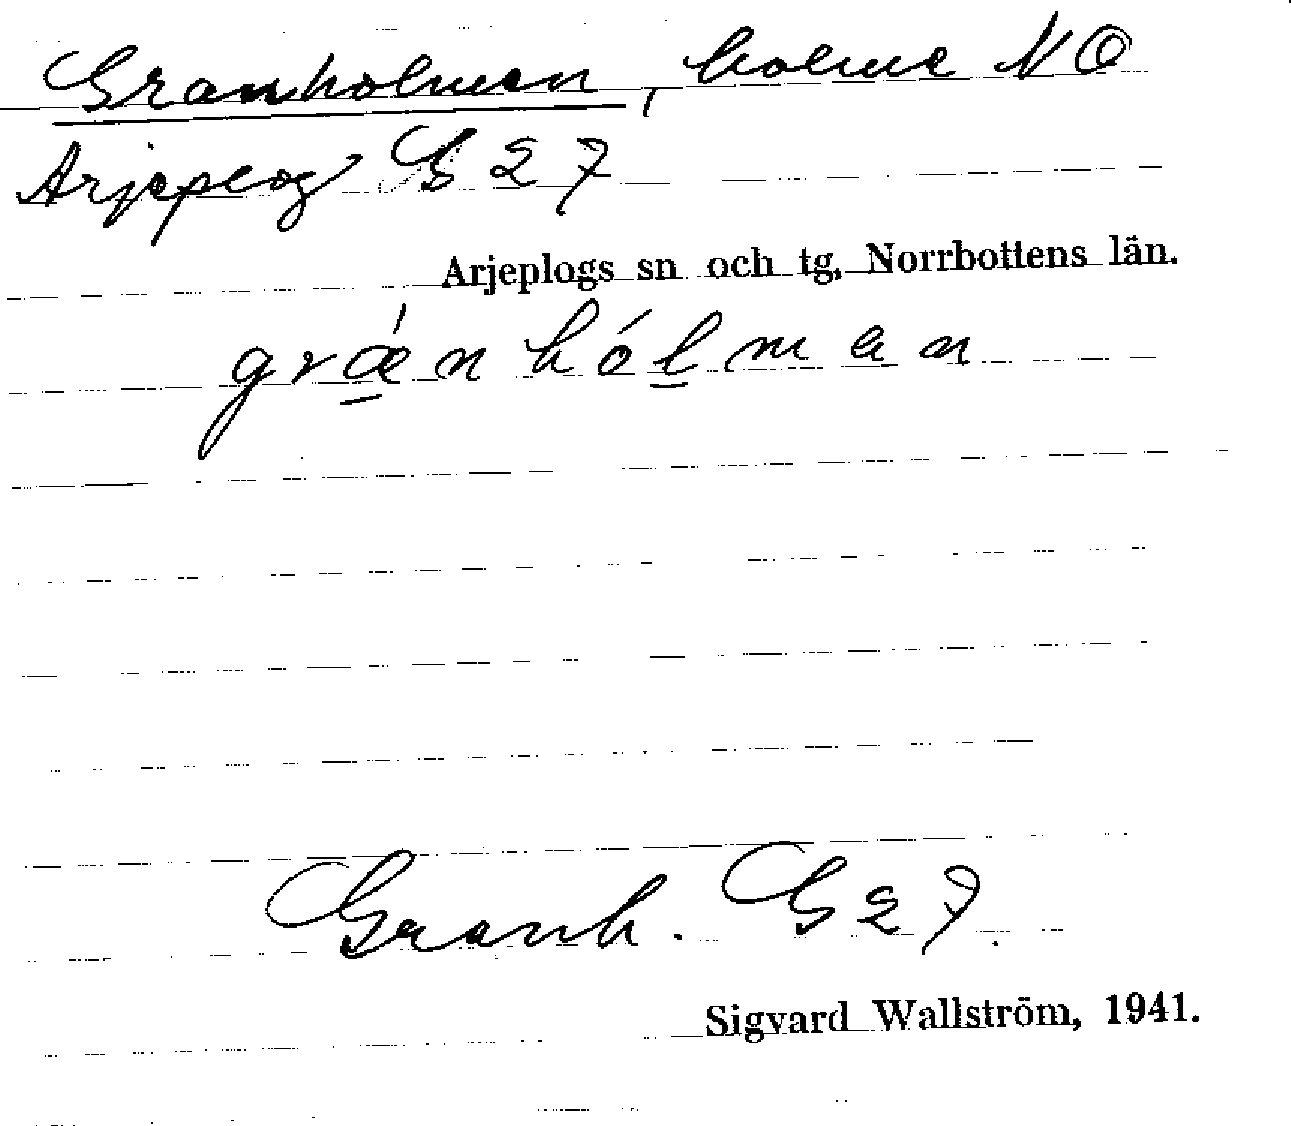 Granholmen, holme NO
Arjeplog G 27
Arjeplogs sn och tg, Norrbottens län.
grǽnhólmen
Granh. G 27.
Sigvard Wallström, 1941.